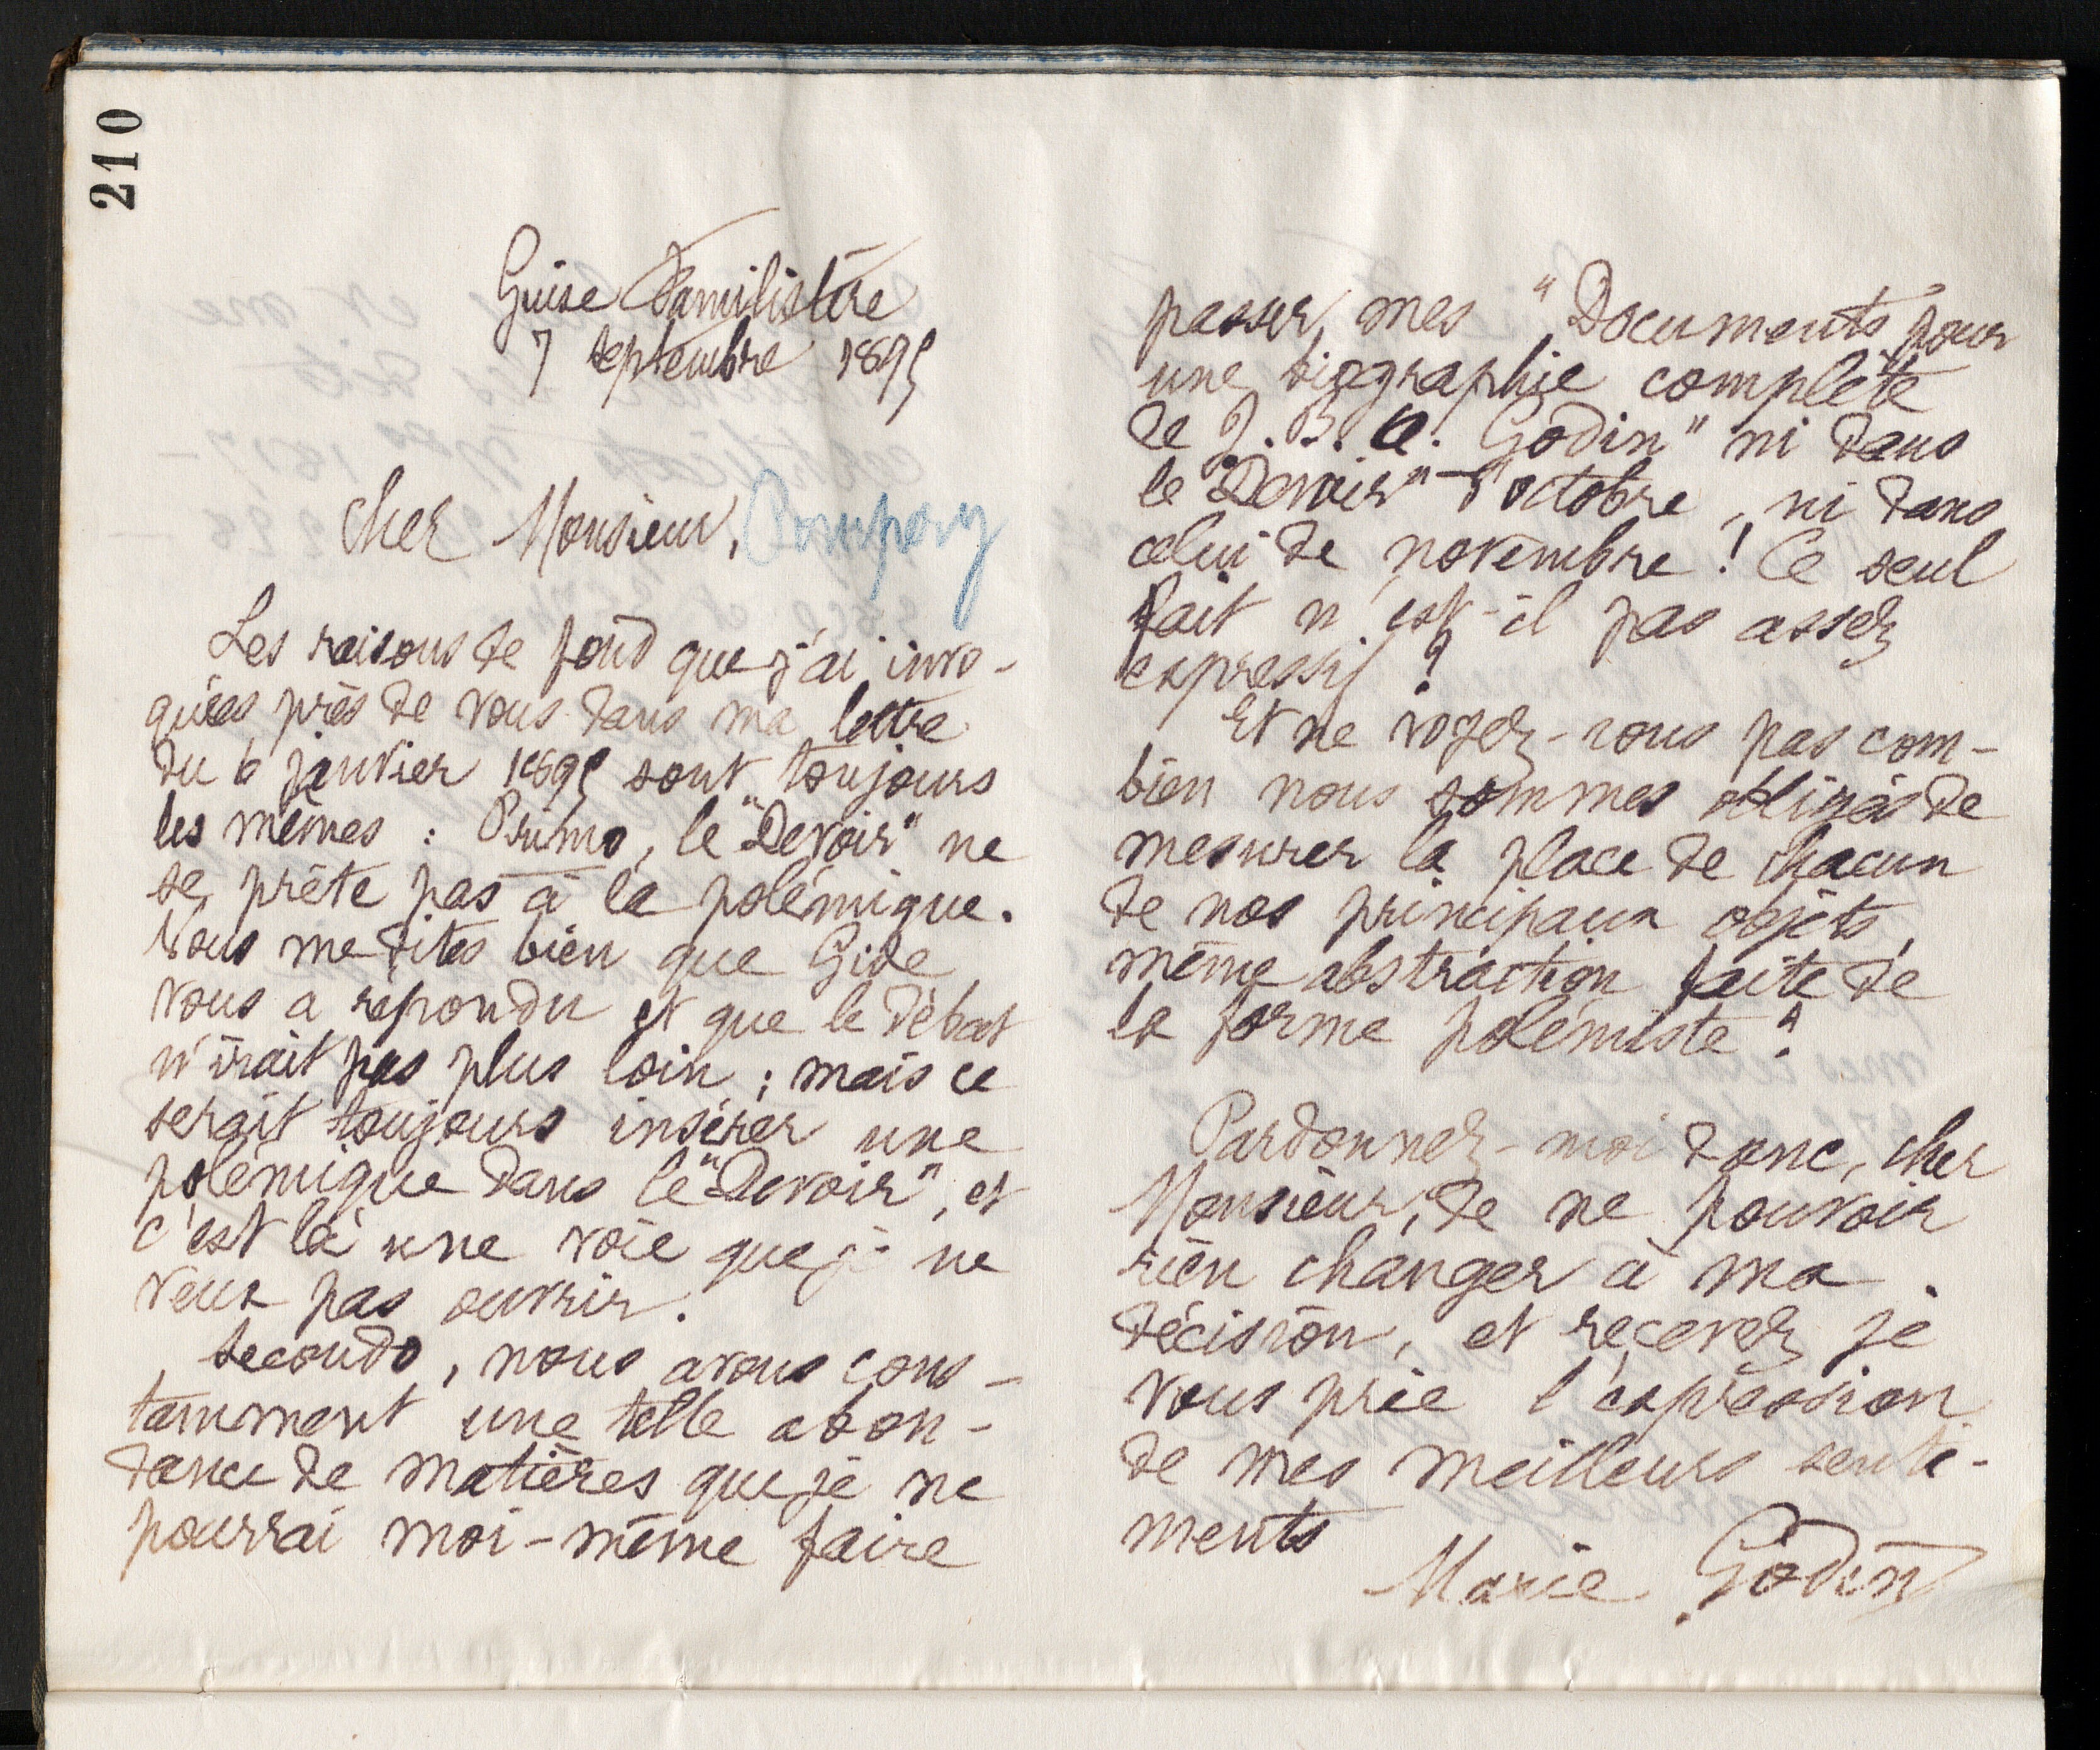 210
Guise Familistère
7 septembre 1895
Cher Monsieur, Pompery
Les raisons de fond que j'ai invo-
quées près de vous dans ma lettre
du 6 janvier 1895 sont toujours
les mêmes : Primo, le "Devoir" ne
se prête pas à la polémique.
Vous me dites bien que Gide
vous a répondu et que le débat
n'irait pas plus loin ; mais ce
serait toujours insérer une
polémique dans le "Devoir", et
c'est là une voie que je ne
veux pas ouvrir.
Secondo, nous avons cons-
tamment une telle abon-
dance de matières que je ne
pourrai moi-même faire
passer, mes "Documents pour
une biographie complète
de J. B. A. Godin" ni dans
le "Devoir" d'octobre, ni dans
celui de novembre ! Ce seul
fait n'est-il pas assez
expressif ?
Et ne voyez-vous pas com-
bien nous sommes obligés de
mesurer la place de chacun
de nos principaux objets,
même abstraction faite de
la forme polémiste ?
Pardonnez-moi donc, cher
Monsieur, de ne pouvoir
rien changer à ma
décision, et recevez je
vous prie l'expression
de mes meilleurs senti-
ments
Marie Godin